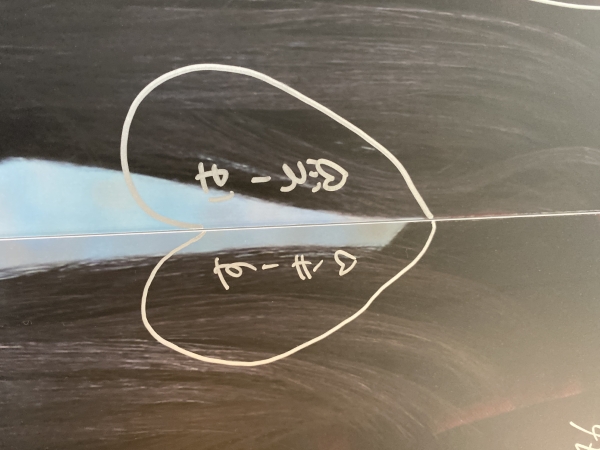 はーと♡
すーき♡